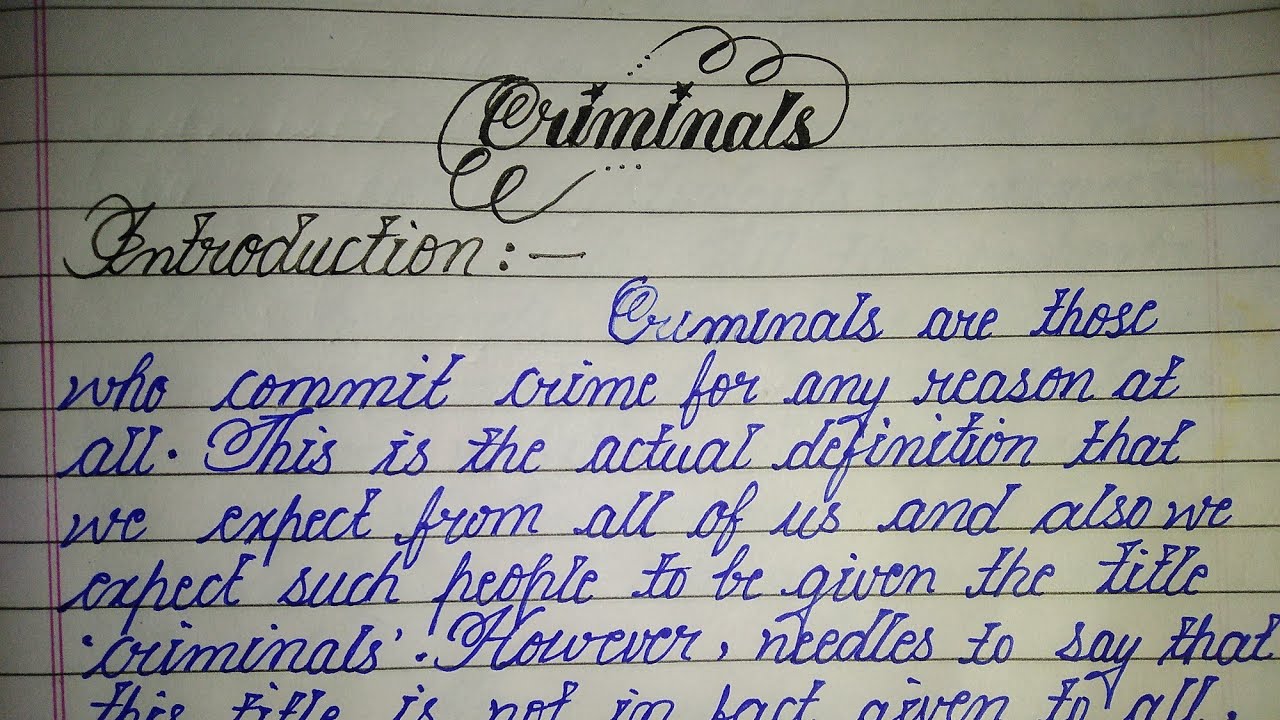 Criminals
Introduction :-
Criminals are those
who commit crime for any reason at
all. This is the actual definition that
we expect from all of us and also we
expect such people to be given the title
'criminals'. However, needles to say that
this title is not in fact given to all.